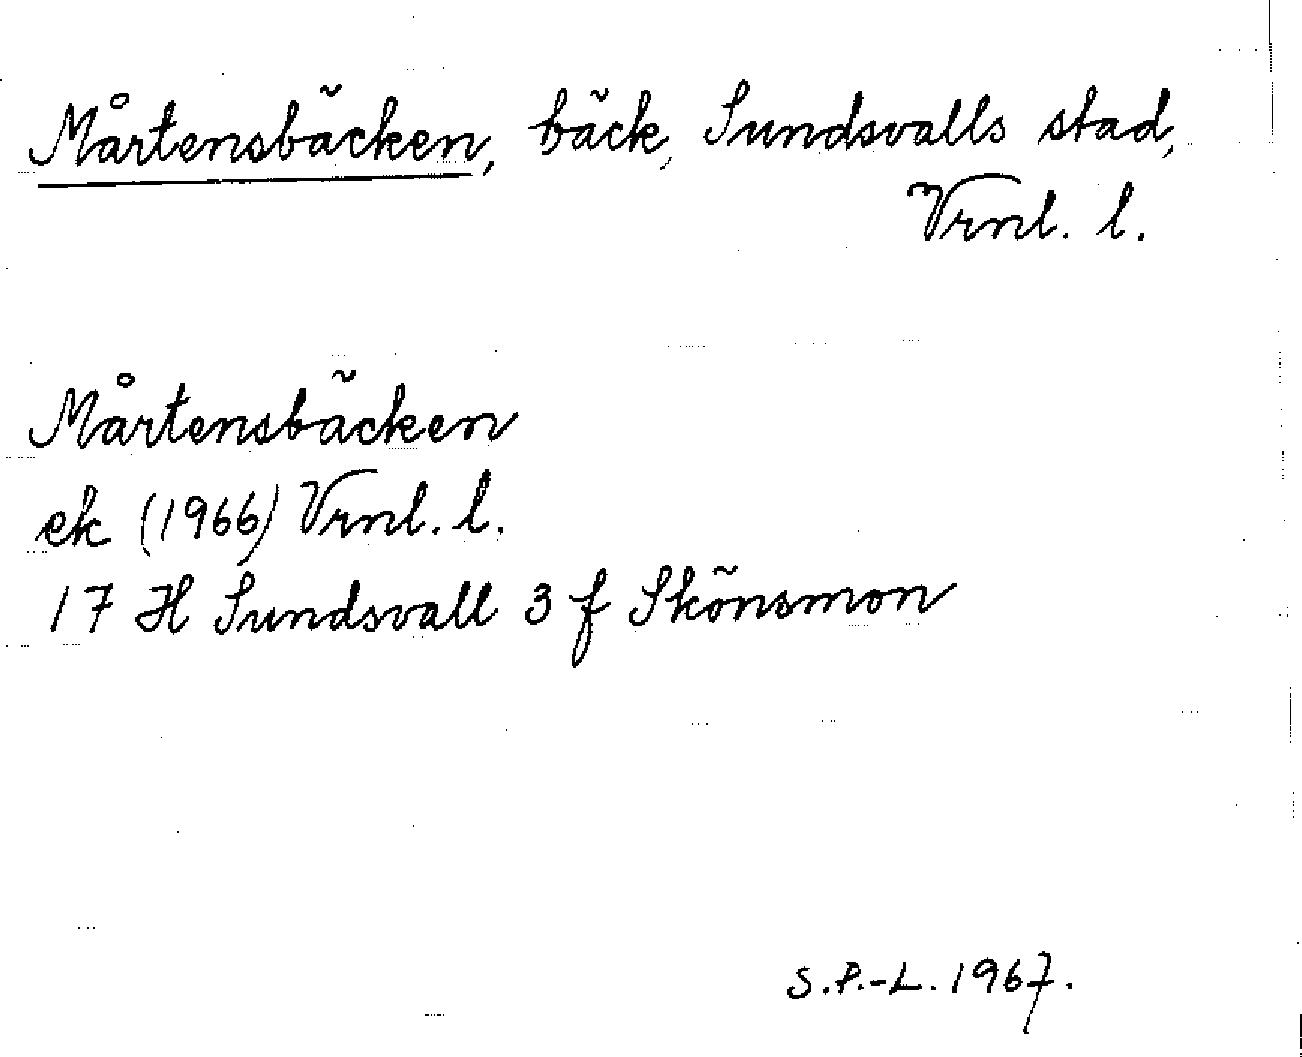 Mårtensbäcken, bäck, Sundsvalls stad,
Vrnl. l.
Mårtensbäcken
ek (1966) Vrnl. l.
17 H Sundsvall 3 f Skönsmon
S.P.-L. 1967.